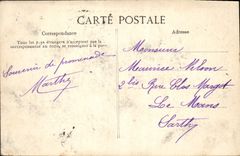 CARTE POSTALE
Correspondance
Tous les pays étrangers n'acceptent pas la
correspondance au recto, se renseigner à la poste
Souvenir de promenade
Marthe
Monsieur
Maurice
2 bis Rue Clos Margot
Le Mans
Sarthe